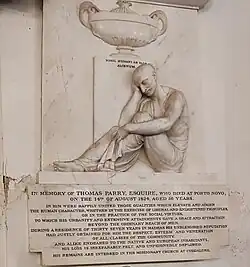 IN MEMORY OF THOMAS PARRY, ESQUIRE, WHO DIED AT PORTO NOVO,
ON THE 14TH OF AUGUST 1824, AGED 56 YEARS.
IN HIM WERE HAPPILY UNITED THOSE QUALITIES WHICH ELEVATE AND ADORN
THE HUMAN CHARACTER, WHETHER IN THE EXERCISE OF LIBERAL AND ENLIGHTENED PRINCIPLES,
OR IN THE PRACTICE OF THE SOCIAL VIRTUES,
TO WHICH HIS URBANITY AND EXTENSIVE ATTAINMENTS GAVE A GRACE AND ATTRACTION
BEYOND THE ORDINARY REACH OF MEN.
DURING A RESIDENCE OF THIRTY SEVEN YEARS IN MADRAS HIS ESTABLISHED REPUTATION
HAD JUSTLY OBTAINED FOR HIM THE RESPECT, ESTEEM AND VENERATION
OF ALL CLASSES OF THE COMMUNITY,
AND ALIKE ENDEARED TO THE NATIVE AND EUROPEAN INHABITANTS,
HIS LOSS IS IRREPARABLY FELT, AND UNFEIGNEDLY DEPLORED.
HIS REMAINS ARE INTERRED IN THE MISSIONARY CHURCH AT CUDDALORE.